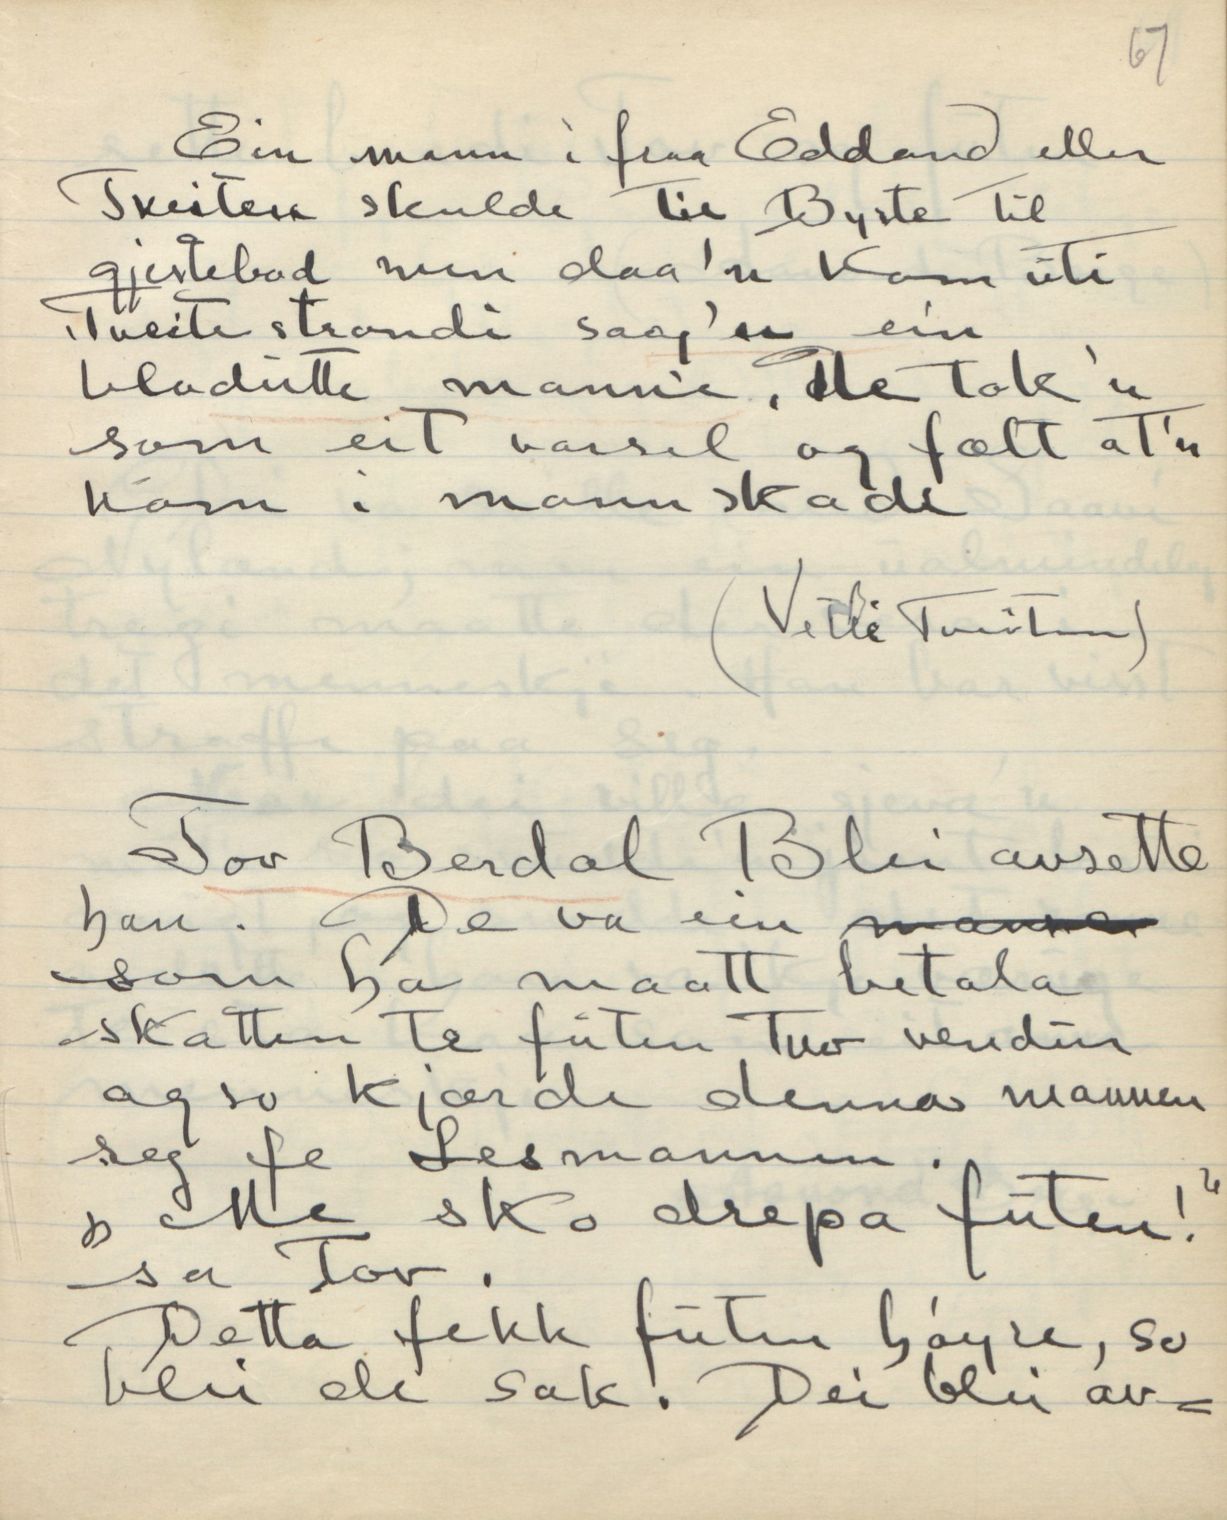 67
Ein mann i fraa Eddand eller
Tveiten skulde til Byrte til
gjestebod men daa'n kom uti
Tveitestrondi saag'n ein
blodutte mannie, De tok'n
som eit varsel og fælt at'n
kom i mannskade
(Vetle Tveiten)
Tov Berdal Blei avsette
han. De va ein manne
som ha maatt betala
skatten te futen tvo vendur
ag so kjærde denna mannen
seg fe Lesmannen.
„Me sko drepa futen!"
sa Tov.
Detta fekk futen høyre, so
blei de sak. Dei blei av=